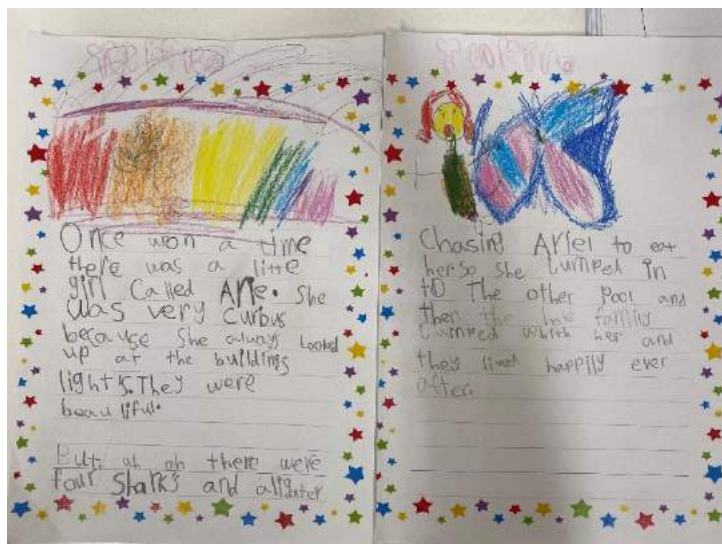 Once upon a time
there was a litte
girl Called Arie. She
was very Curbus
because She always Looked
up at the buildings
lights. They were
beautiful.
But uh oh there were
four Sharks and alligater
Chasing Ariel to eat
her so She Lumped in
to The other Pool and
then the hole family
Lumped whith her and
they lived happily ever
after.